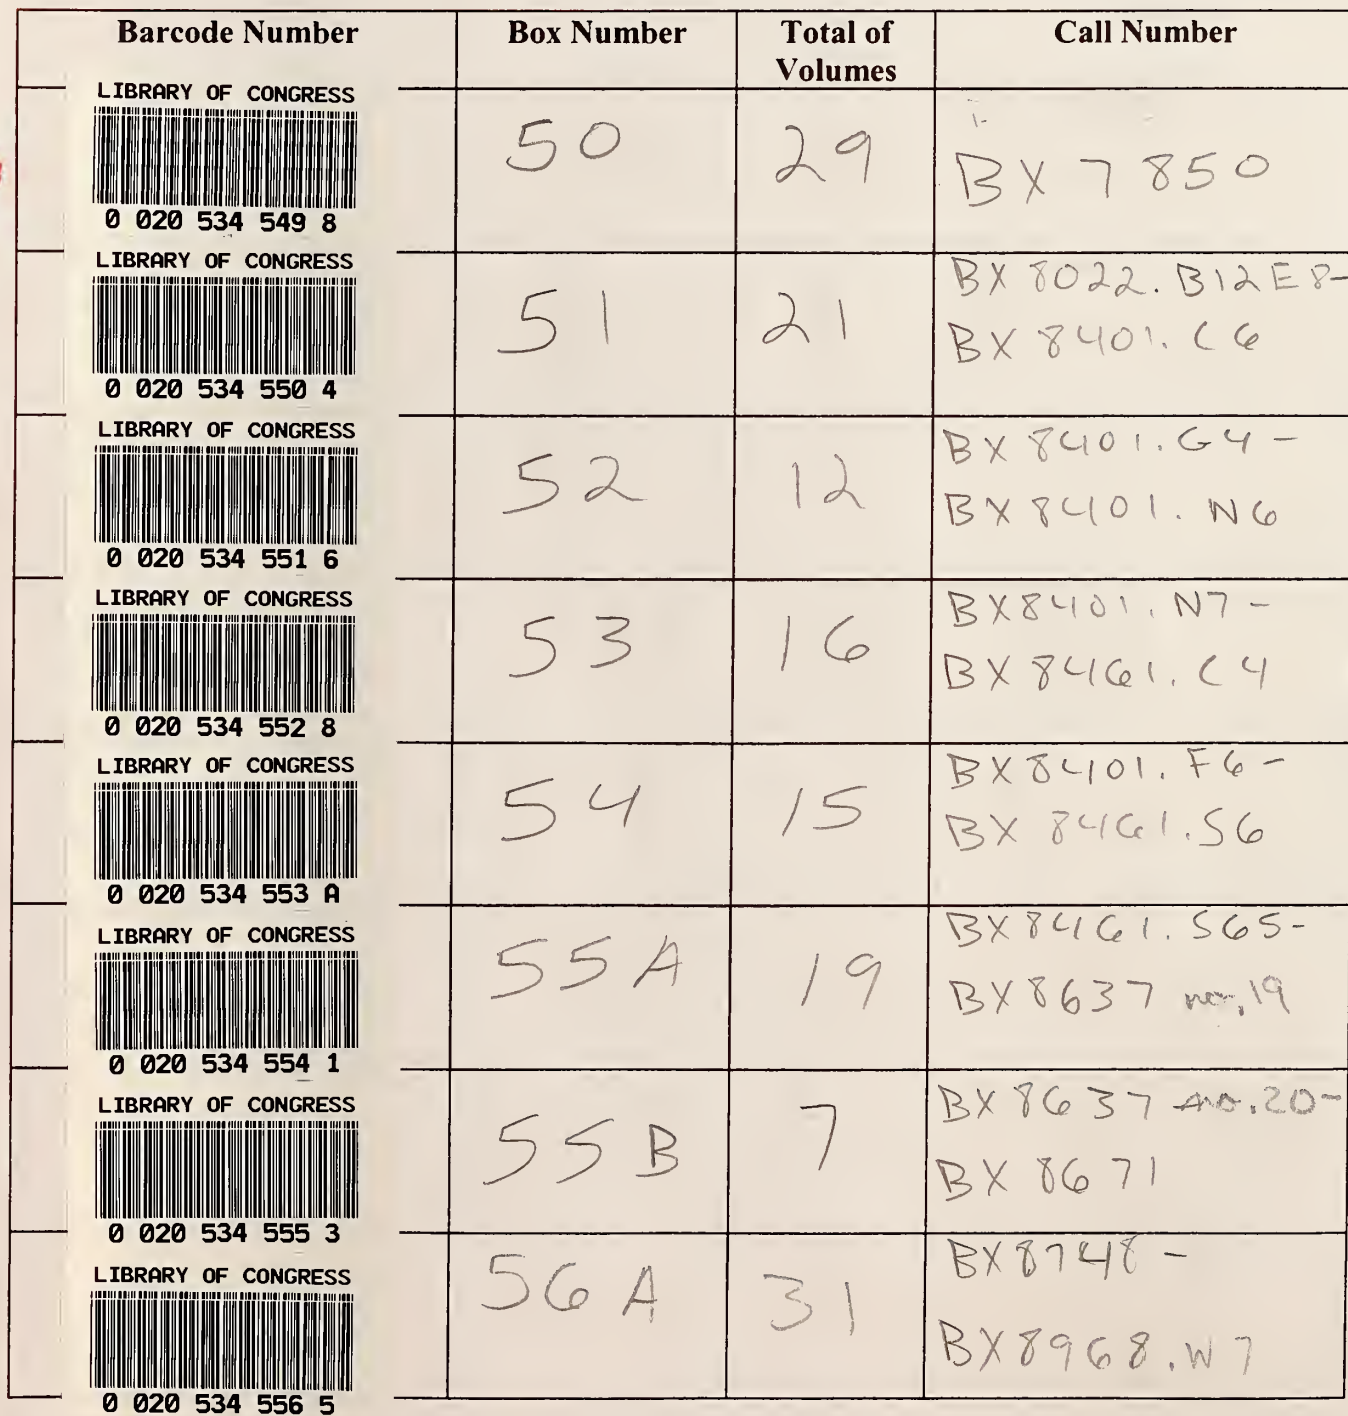 Barcode Number Box Number Total of Volumes Call Number
LIBRARY OF CONGRESS
0 020 534 549 8
50 29 BX 7850
LIBRARY OF CONGRESS
0 020 534 550 4
51 21 BX 8022. B12E8-
BX 8401. C6
LIBRARY OF CONGRESS
0 020 534 551 6
52 12 BX 8401. G4 -
BX 8401. N6
LIBRARY OF CONGRESS
0 020 534 552 8
53 16 BX8401. N7 -
BX 8461. C4
LIBRARY OF CONGRESS
0 020 534 553 A
54 15 BX8401. F6 -
BX 8461.S6
LIBRARY OF CONGRESS
0 020 534 554 1
55A 19 BX8461. S65-
BX8637 no.19
LIBRARY OF CONGRESS
0 020 534 555 3
55B 7 BX 8637 no.20-
BX 8671
LIBRARY OF CONGRESS
0 020 534 556 5
56A 31 BX8748 -
BX8968.W7